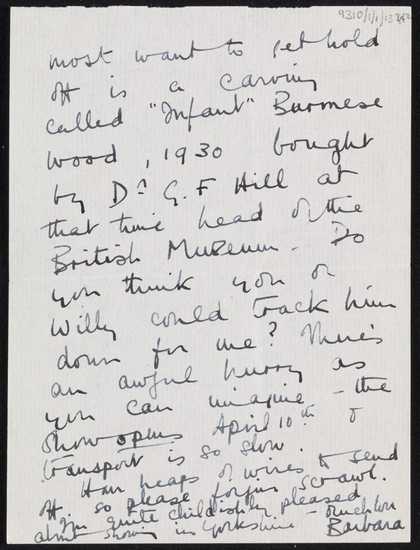 9310/1/1/13
most want to get hold
of is a carving
called "Infant" Burmese
wood, 1930 bought
by Dr G.F Hill at
that time head of the
British Museum - Do
you think you or
Willy could track him
down for me? There's
an awful hurry as
you can imagine - the
show opens April 10th &
transport is so slow.
Have heaps of wires to send
off so please forgive scrawl.
I'm quite childishly pleased
about showing in Yorkshire - much love
Barbara